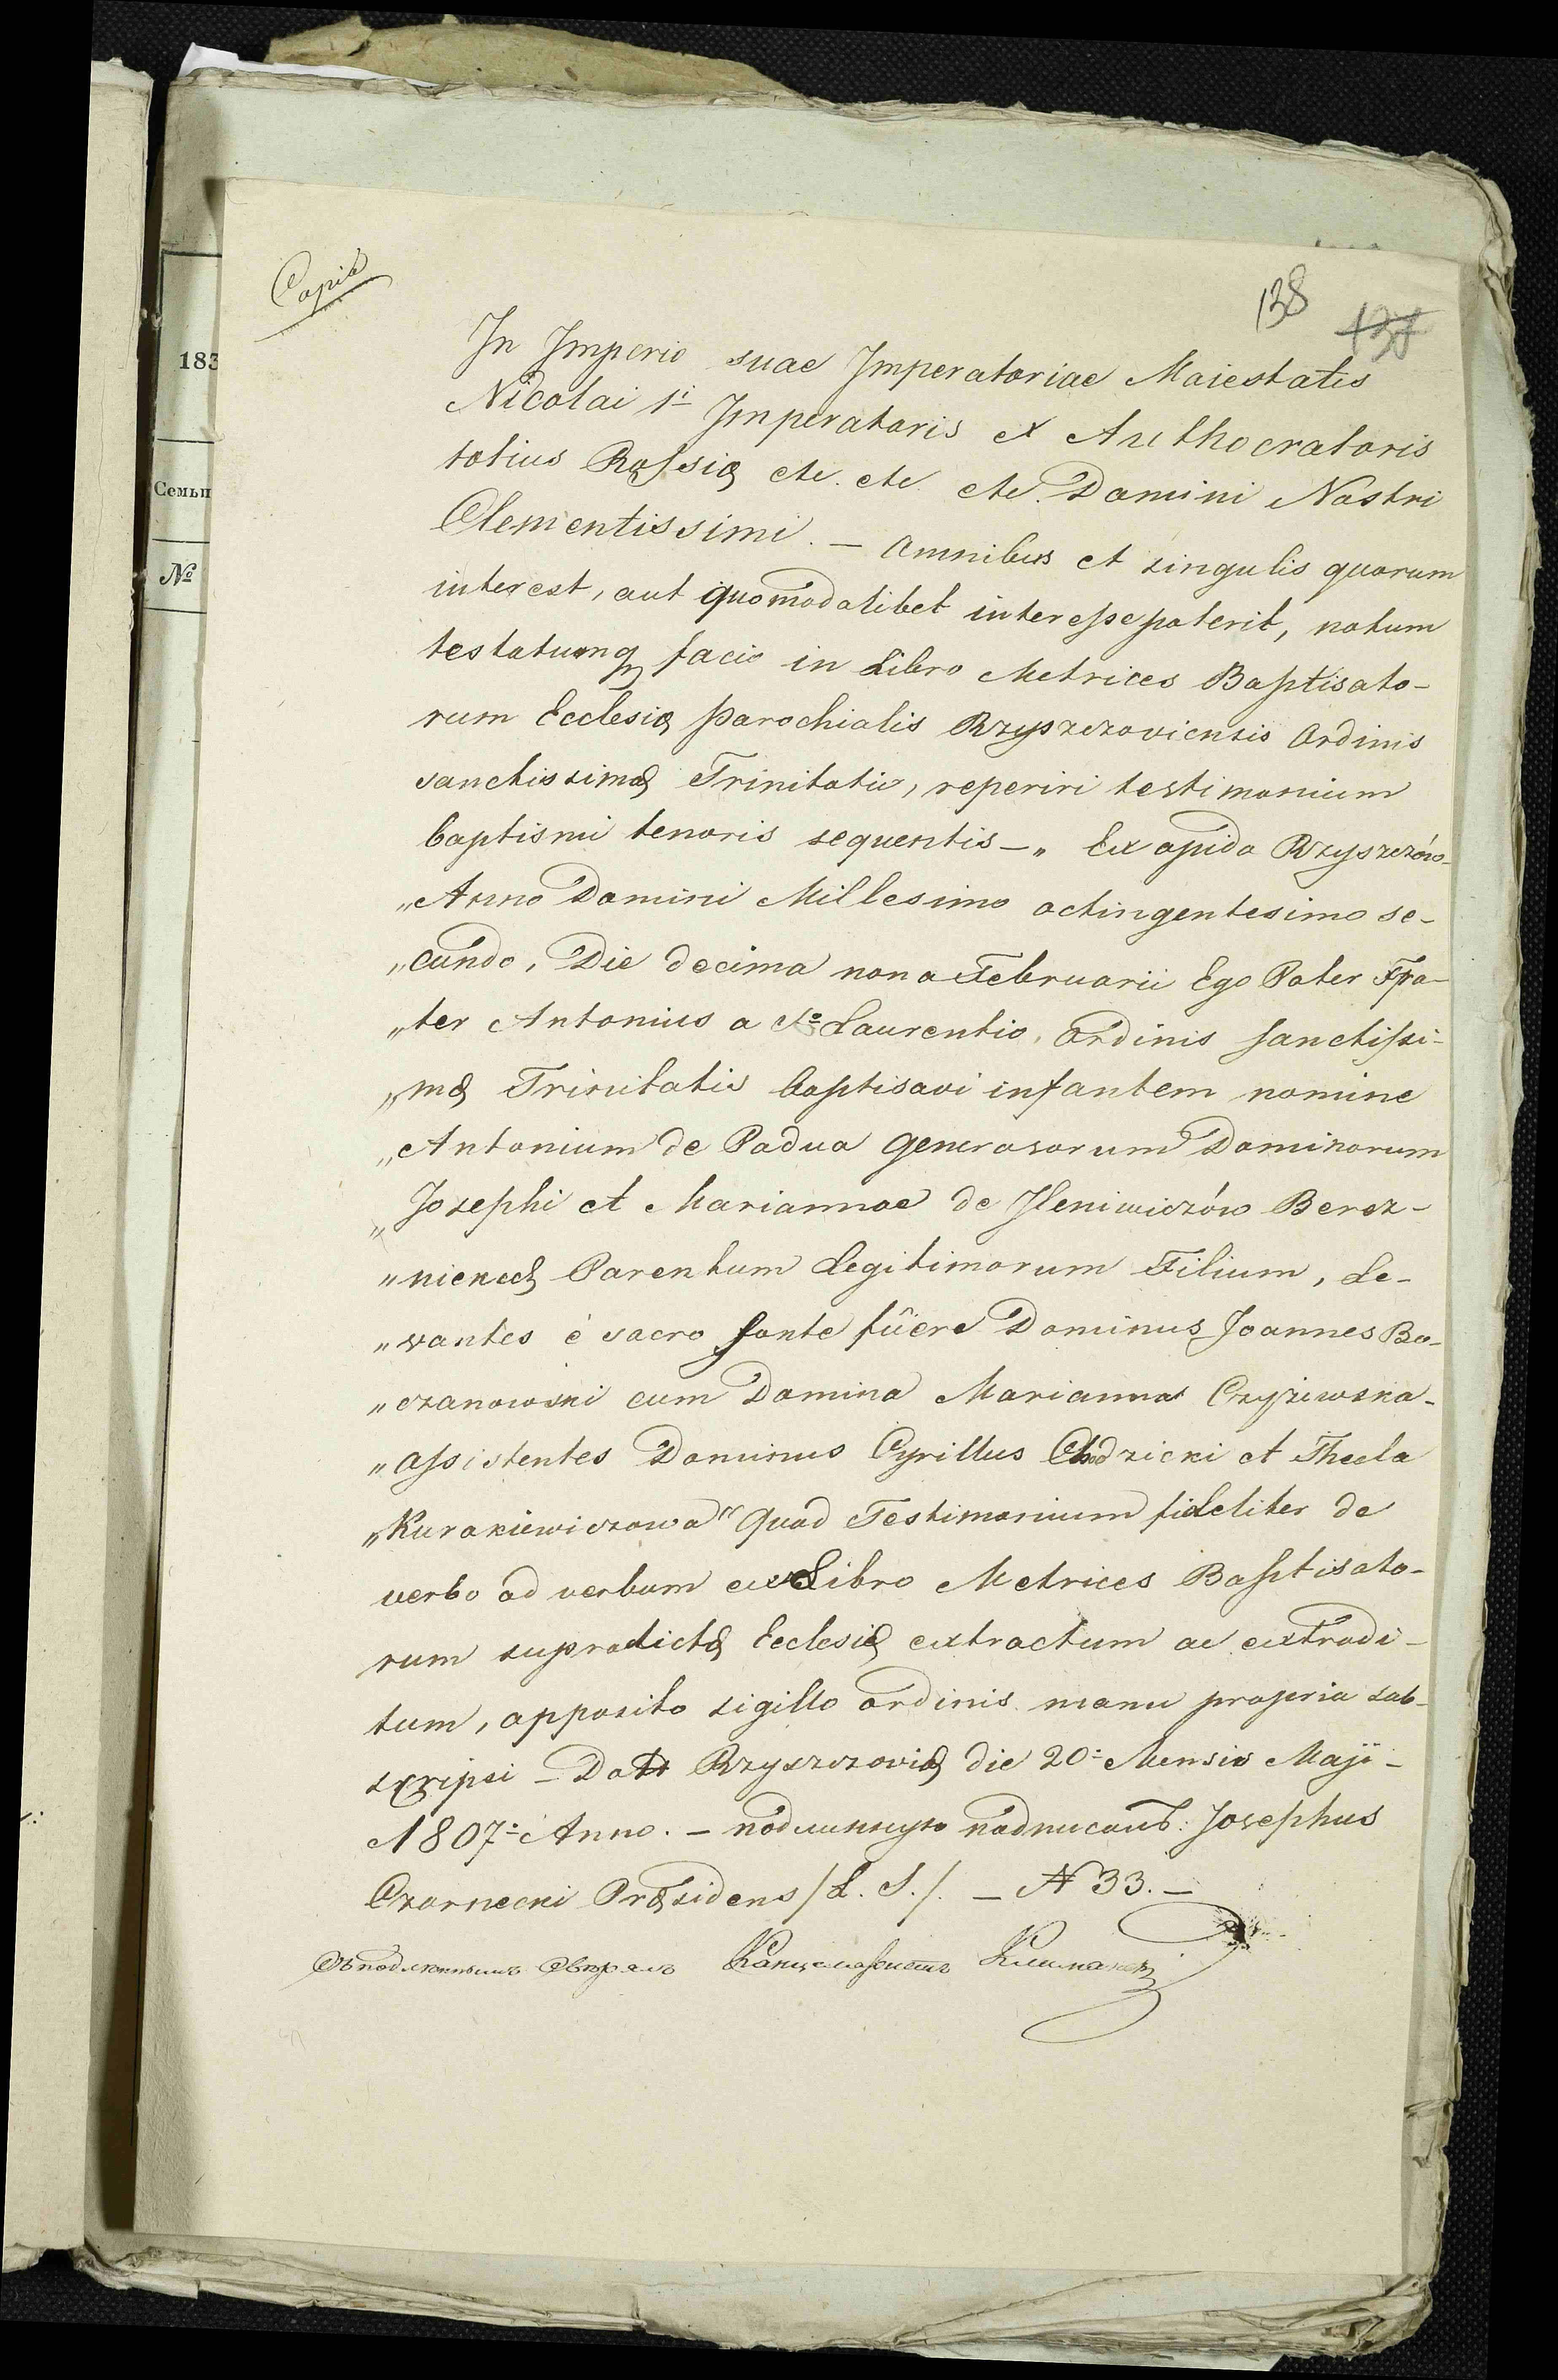 Copia
138
137
183
Семьи
№
In Imperio suae Imperatoriae Maiestatis
Nicolai 1i Imperatoris et Authocratoris
totius Rossiæ etc. etc. etc. Domini Nostri
Clementissimi. — Omnibus et singulis quorum
interest, aut quomodolibet interesse poterit, notum
testatumq facio in Libro Metrices Baptisato-
rum Ecclesiæ Parochialis Rzyszczoviensis Ordinis
sanctissimæ Trinitatis, reperiri testimonium
baptismi tenoris sequentis — „ Ex opido Rzyszczów
„Anno Domini Millesimo octingentesimo se-
„cundo, Die decima nona Februarii Ego Pater Fra-
„ter Antonius a Sto Laurentio, Ordinis sanctissi-
„mæ Trinitatis baptisavi infantem nomine
„Antonium de Padua Generosorum Dominorum
„Josephi et Mariannae de Jleniwiczów Berez-
„nickich Parentum Legitimorum Filium, Le-
„vantes è sacro fonte fûere Dominus Joannes Bo-
„czanowski cum Domina Marianna Czyżewska-
„assistentes Dominus Cyrillus Chodzicki et Thecla
„Kurakiewiczowa" Quod Testimonium fideliter de
verbo ad verbum ex Libro Metrices Baptisato-
rum supradictæ Ecclesiæ extractum ac extradi-
tum, apposito sigillo ordinis manu propria sub-
scripsi — Datt Rzyszczoviæ die 20: Mensis Maji -
1807: Anno. — подлинную подписалъ: Josephus
Czarnecki Præsidens /L. S./. — N 33. —
Съ подлиннымъ свѣрялъ Канцеляристъ